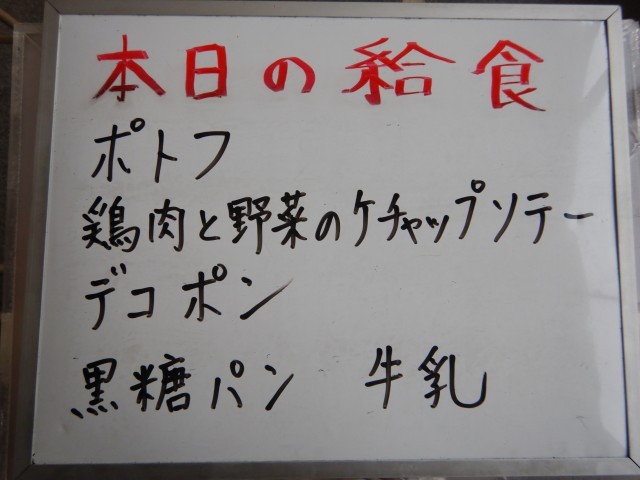 本日の給食
ポトフ
鶏肉と野菜のケチャップソテー
デコポン
黒糖パン 牛乳